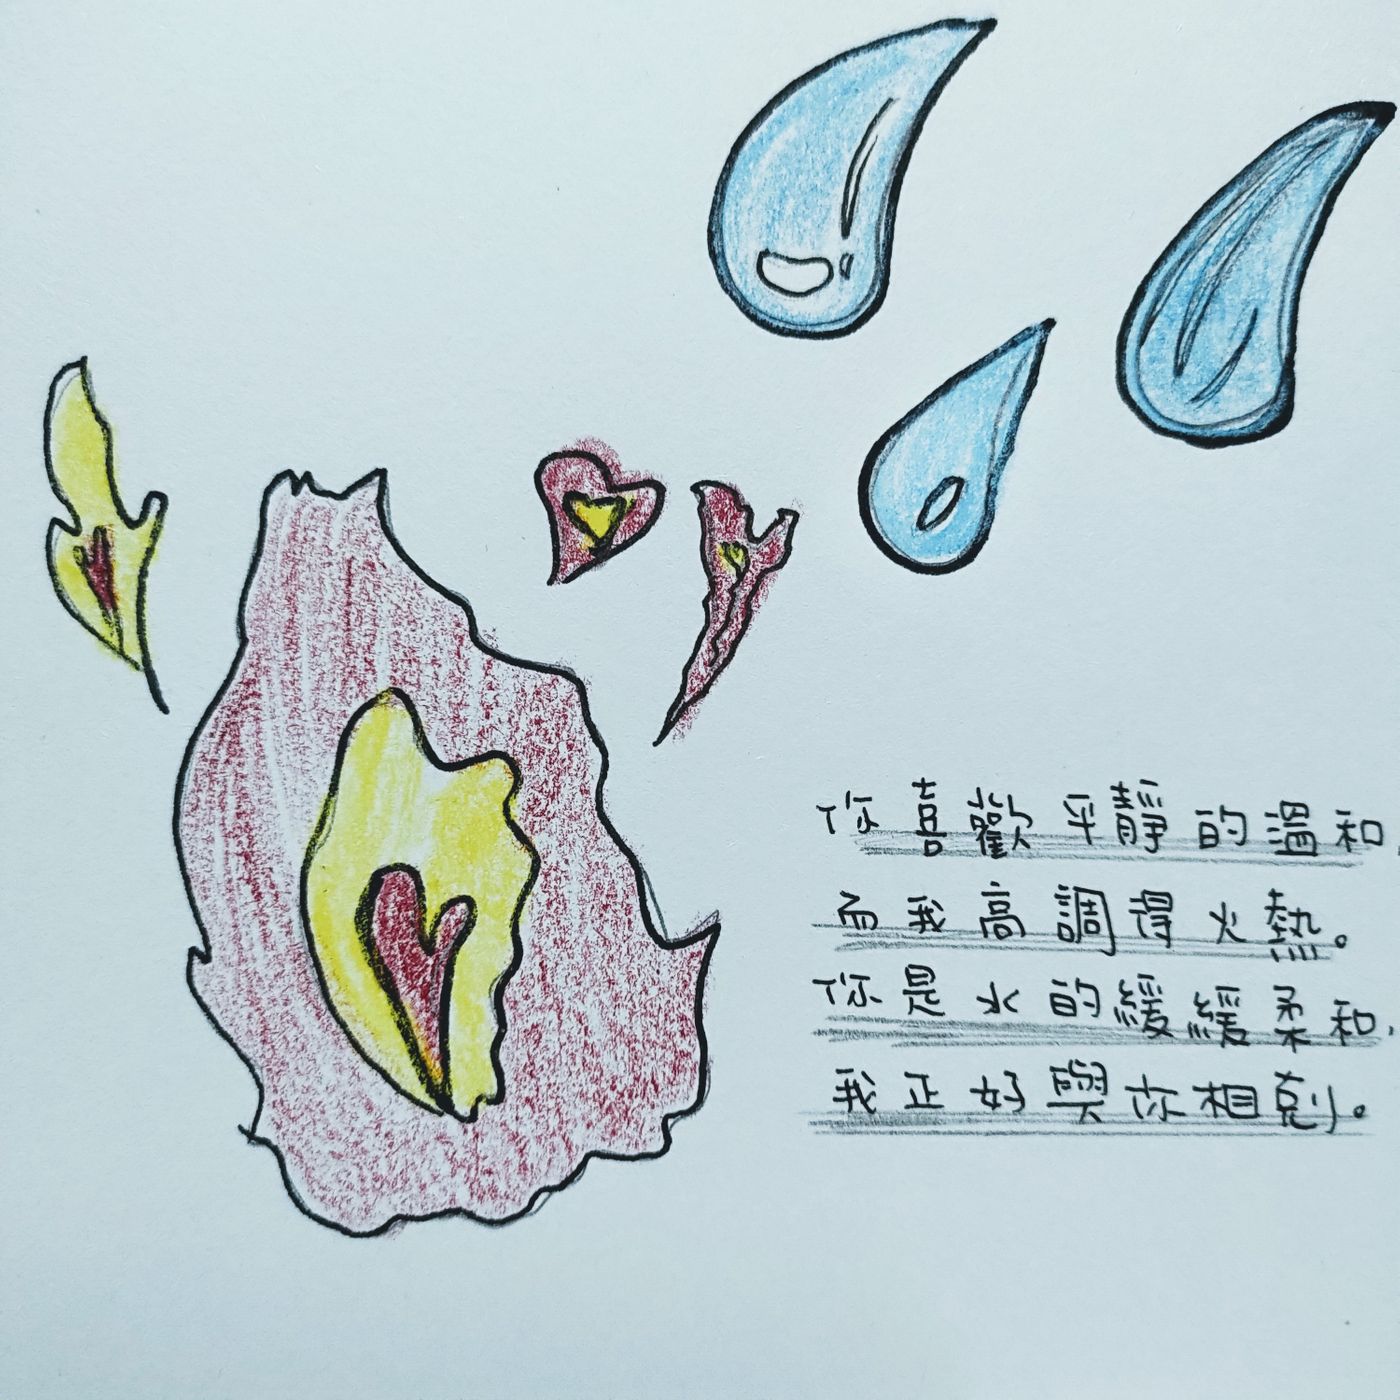 你喜歡平靜的溫和,
而我高調得火熱。
你是水的緩緩柔和,
我正好與你相剋。